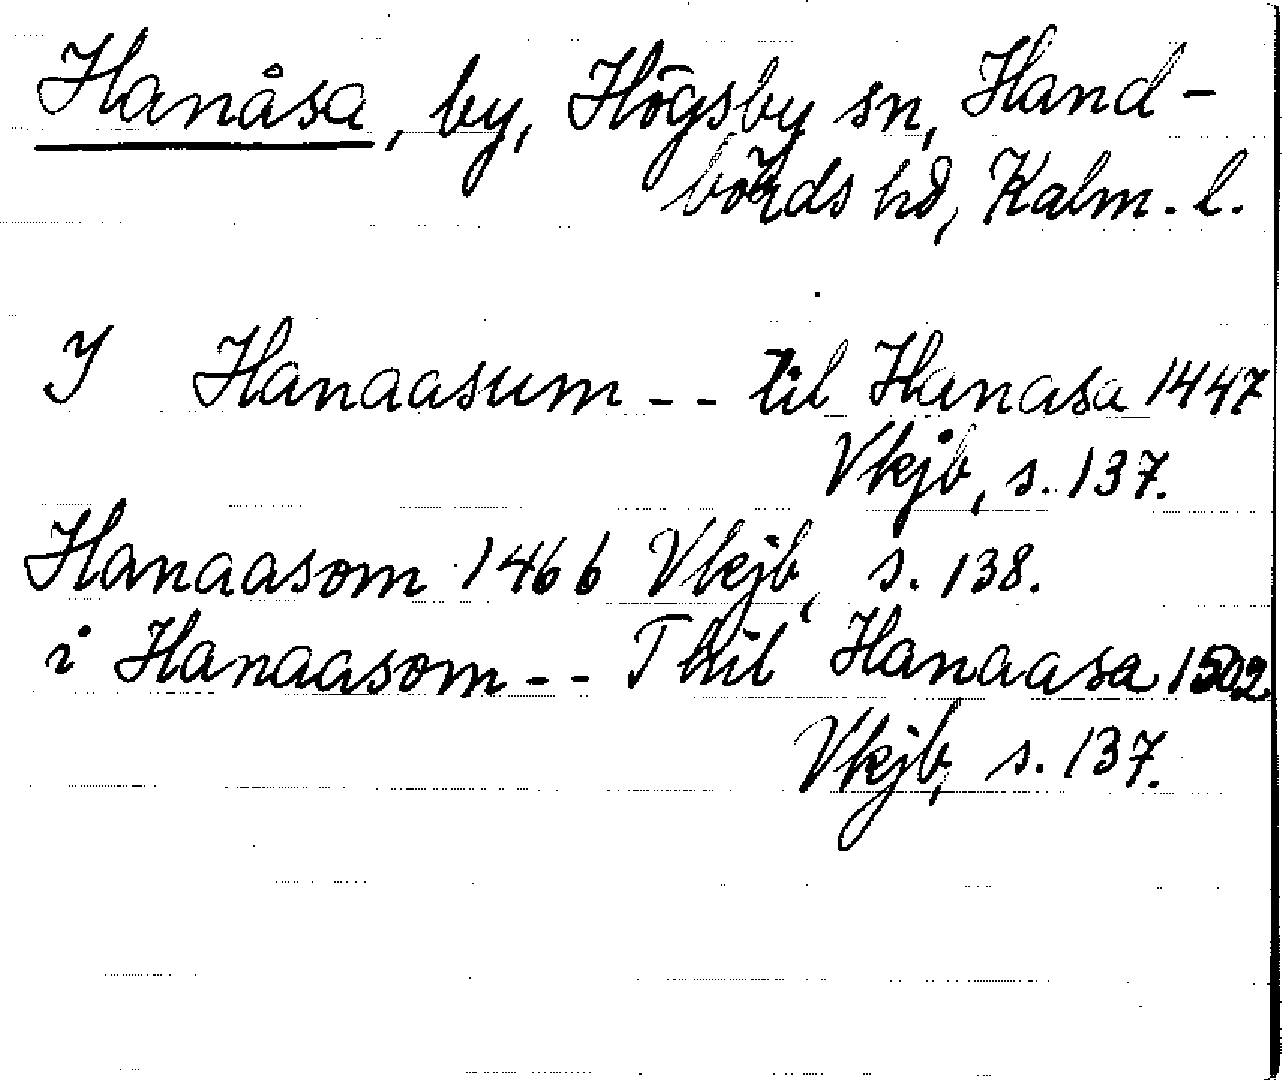 Hanåsa, by, Högsby sn, Hand-
börds hd, Kalm. l.
I Hanaasum -- til Hanasa 1447
Vkjb, s. 137.
Hanaasom 1466 Vkjb, s. 138.
i Hanaasom -- Thil Hanaasa 1502
Vkjb, s. 137.